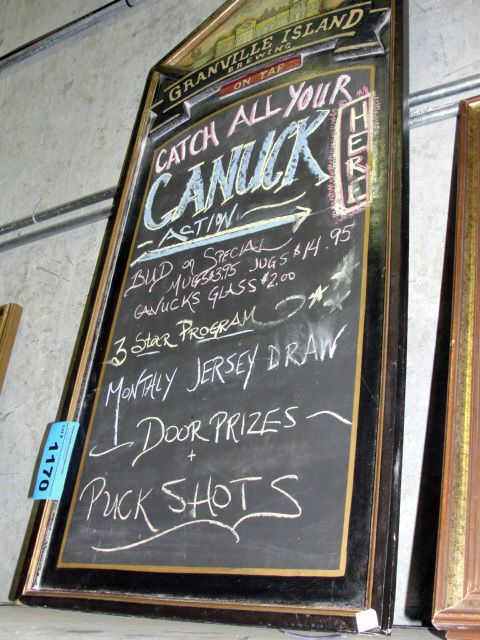 GRANVILLE ISLAND
BREWING
ON TAP
CATCH ALL YOUR
CANUCK
HERE
ACTION
BUD on SPECIAL
MUGS $3.95 JUGS $14.95
CANUCKS GLASS $2.00
3 Star PROGRAM
MONTHLY JERSEY DRAW
DOOR PRIZES
+
PUCK SHOTS
1170